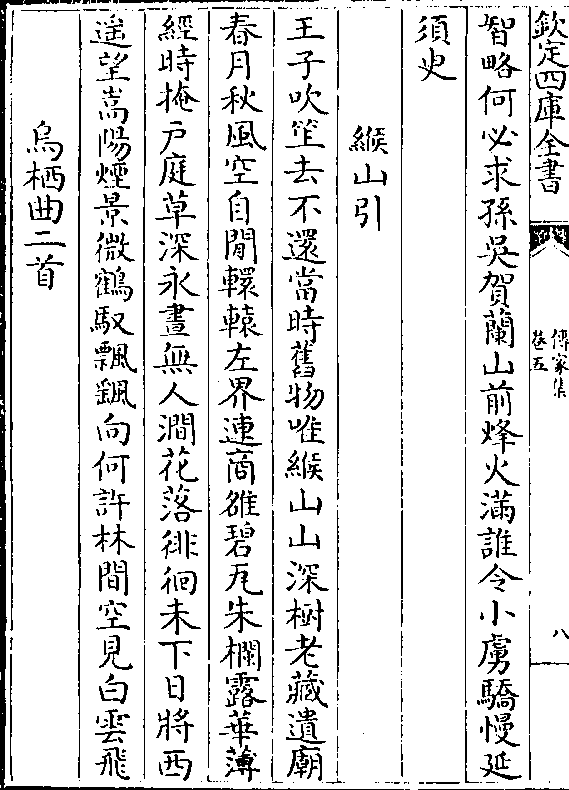 欽定四庫全書
傳家集
卷五
八
智略何必求孫吳賀蘭山前烽火滿誰令小虜驕慢延
須臾
緱山引
王子吹笙去不還當時舊物唯緱山山深樹老藏遺廟
春月秋風空自閒轘轅左界連商雒碧瓦朱欄露華薄
經時掩戶庭草深永晝無人澗花落徘徊未下日將西
遥望嵩陽煙景微鶴馭飄飖向何許林間空見白雲飛
烏栖曲二首